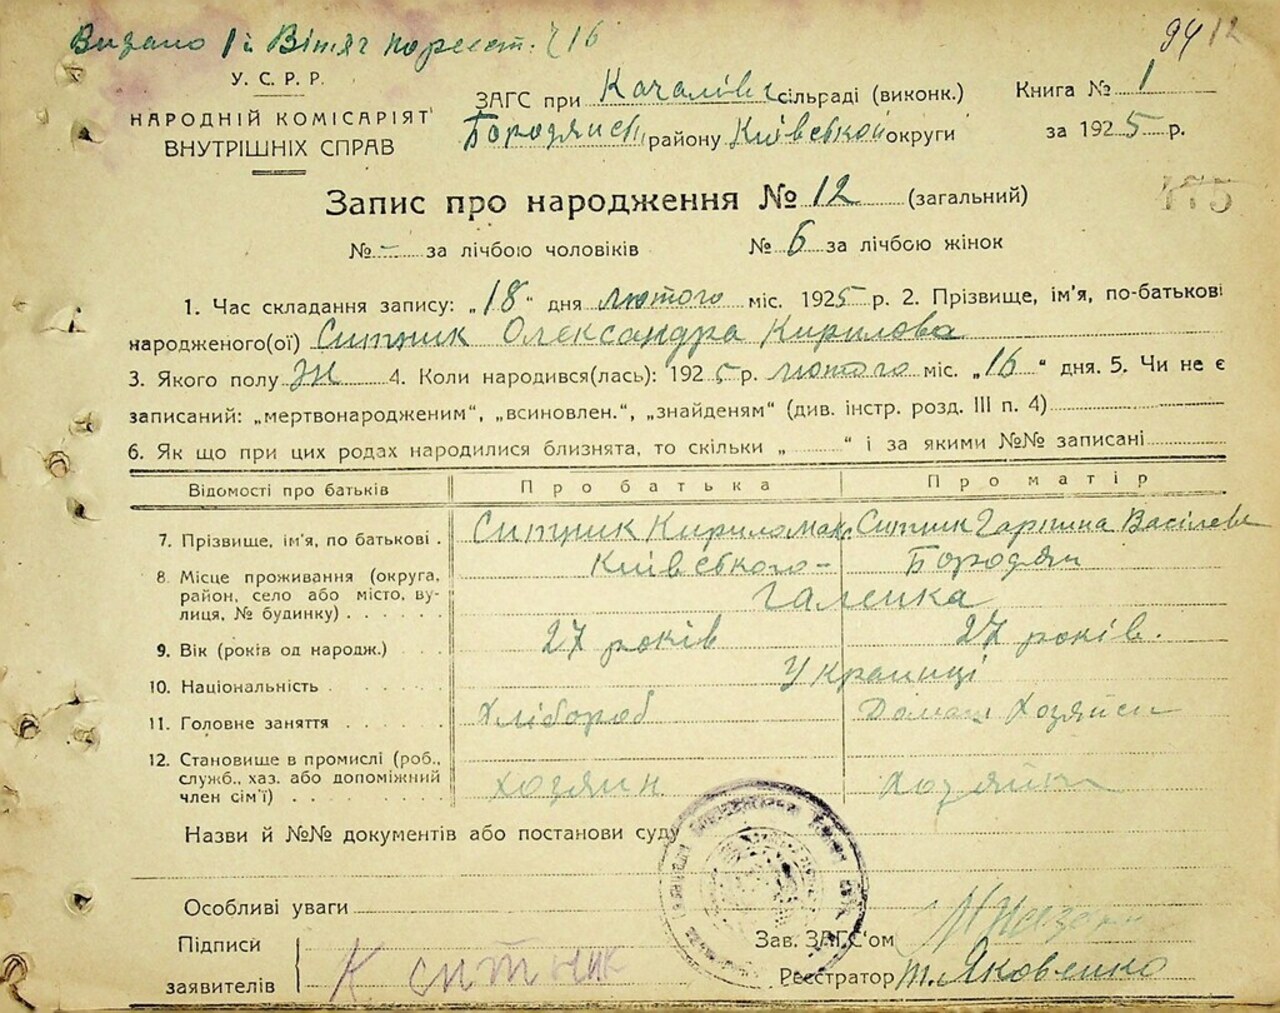 Видано 1й Вітяг по реєст. Ч 16
94 12
У. С. Р. Р.
НАРОДНІЙ КОМІСАРІЯТ
ВНУТРІШНІХ СПРАВ
ЗАГС при Качалівс сільраді (виконк.)
Бородянськ району Київської округи
Книга № 1
за 1925 р.
175
Запис про народження № 12 (загальний)
№ - за лічбою чоловіків № 6 за лічбою жінок
1. Час складання запису: „18“ дня лютого міс. 1925 р. 2. Прізвище, ім'я, по-батькові
народженого(ої) Ситник Олександра Кирилова
3. Якого полу Ж 4. Коли народився(лась): 1925 р. лютого міс. „16“ дня. 5. Чи не є
записаний: „мертвонародженим“, „всиновлен.“, „знайденям“ (див. інстр. розд. III п. 4)
6. Як що при цих родах народилися близнята, то скільки „ “ і за якими №№ записані
Відомості про батьків Про батька Про матір
7. Прізвище, ім'я, по батькові . Ситник Кирило Мак. Ситник Гарпина Васілева
8. Місце проживання (округа, район, село або місто, вулиця, № будинку) Київського - Бородян
Галенка
9. Вік (років од народж.) 27 років 27 років.
10. Національність Українці
11. Головне заняття Хлібороб Домаш Хозяйст
12. Становище в промислі (роб., служб., хаз. або допоміжний член сім'ї) хозяин. хозяйка
Назви й №№ документів або постанови суду
Особливі уваги
Підписи
заявителів К ситник
Зав. ЗАГС'ом
Реєстратор т. Яковенко